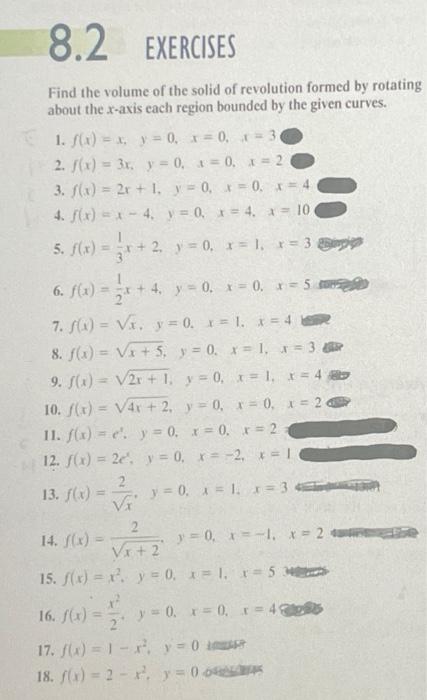 8.2 EXERCISES
Find the volume of the solid of revolution formed by rotating
about the x-axis each region bounded by the given curves.
1. f(x) = x, y = 0, x = 0, x = 3
2. f(x) = 3x, y = 0, x = 0, x = 2
3. f(x) = 2x + 1, y = 0, x = 0, x = 4
4. f(x) = x − 4, y = 0, x = 4, x = 10
5. f(x) = 1/3 x + 2, y = 0, x = 1, x = 3
6. f(x) = 1/2 x + 4, y = 0, x = 0, x = 5
7. f(x) = √x, y = 0, x = 1, x = 4
8. f(x) = √(x + 5), y = 0, x = 1, x = 3
9. f(x) = √(2x + 1), y = 0, x = 1, x = 4
10. f(x) = √(4x + 2), y = 0, x = 0, x = 2
11. f(x) = eˣ, y = 0, x = 0, x = 2
12. f(x) = 2eˣ, y = 0, x = −2, x = 1
13. f(x) = 2/√x, y = 0, x = 1, x = 3
14. f(x) = 2/√(x + 2), y = 0, x = −1, x = 2
15. f(x) = x², y = 0, x = 1, x = 5
16. f(x) = x²/2, y = 0, x = 0, x = 4
17. f(x) = 1 − x², y = 0
18. f(x) = 2 − x², y = 0